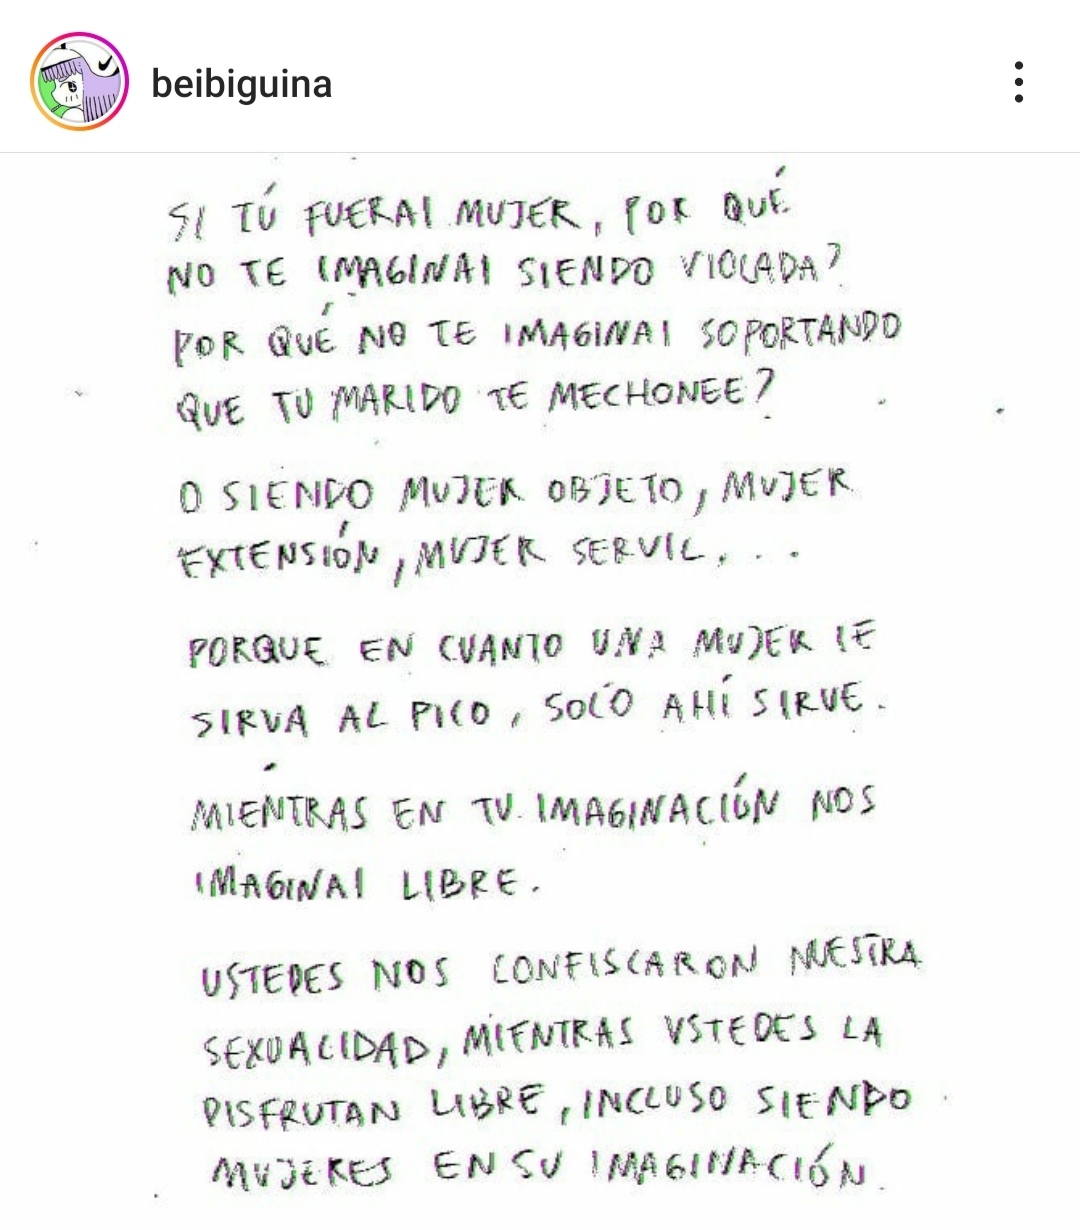 beibiguina
SI TÚ FUERAI MUJER, POR QUÉ
NO TE IMAGINAI SIENDO VIOLADA?
POR QUÉ NO TE IMAGINAI SOPORTANDO
QUE TU MARIDO TE MECHONEE?
O SIENDO MUJER OBJETO, MUJER
EXTENSIÓN, MUJER SERVIL...
PORQUE EN CUANTO UNA MUJER LE
SIRVA AL PICO, SOLO AHÍ SIRVE.
MIÉNTRAS EN TU IMAGINACIÓN NOS
IMAGINAI LIBRE.
USTEDES NOS CONFISCARON NUESTRA
SEXUALIDAD, MIENTRAS USTEDES LA
DISFRUTAN LIBRE, INCLUSO SIENDO
MUJERES EN SU IMAGINACIÓN.